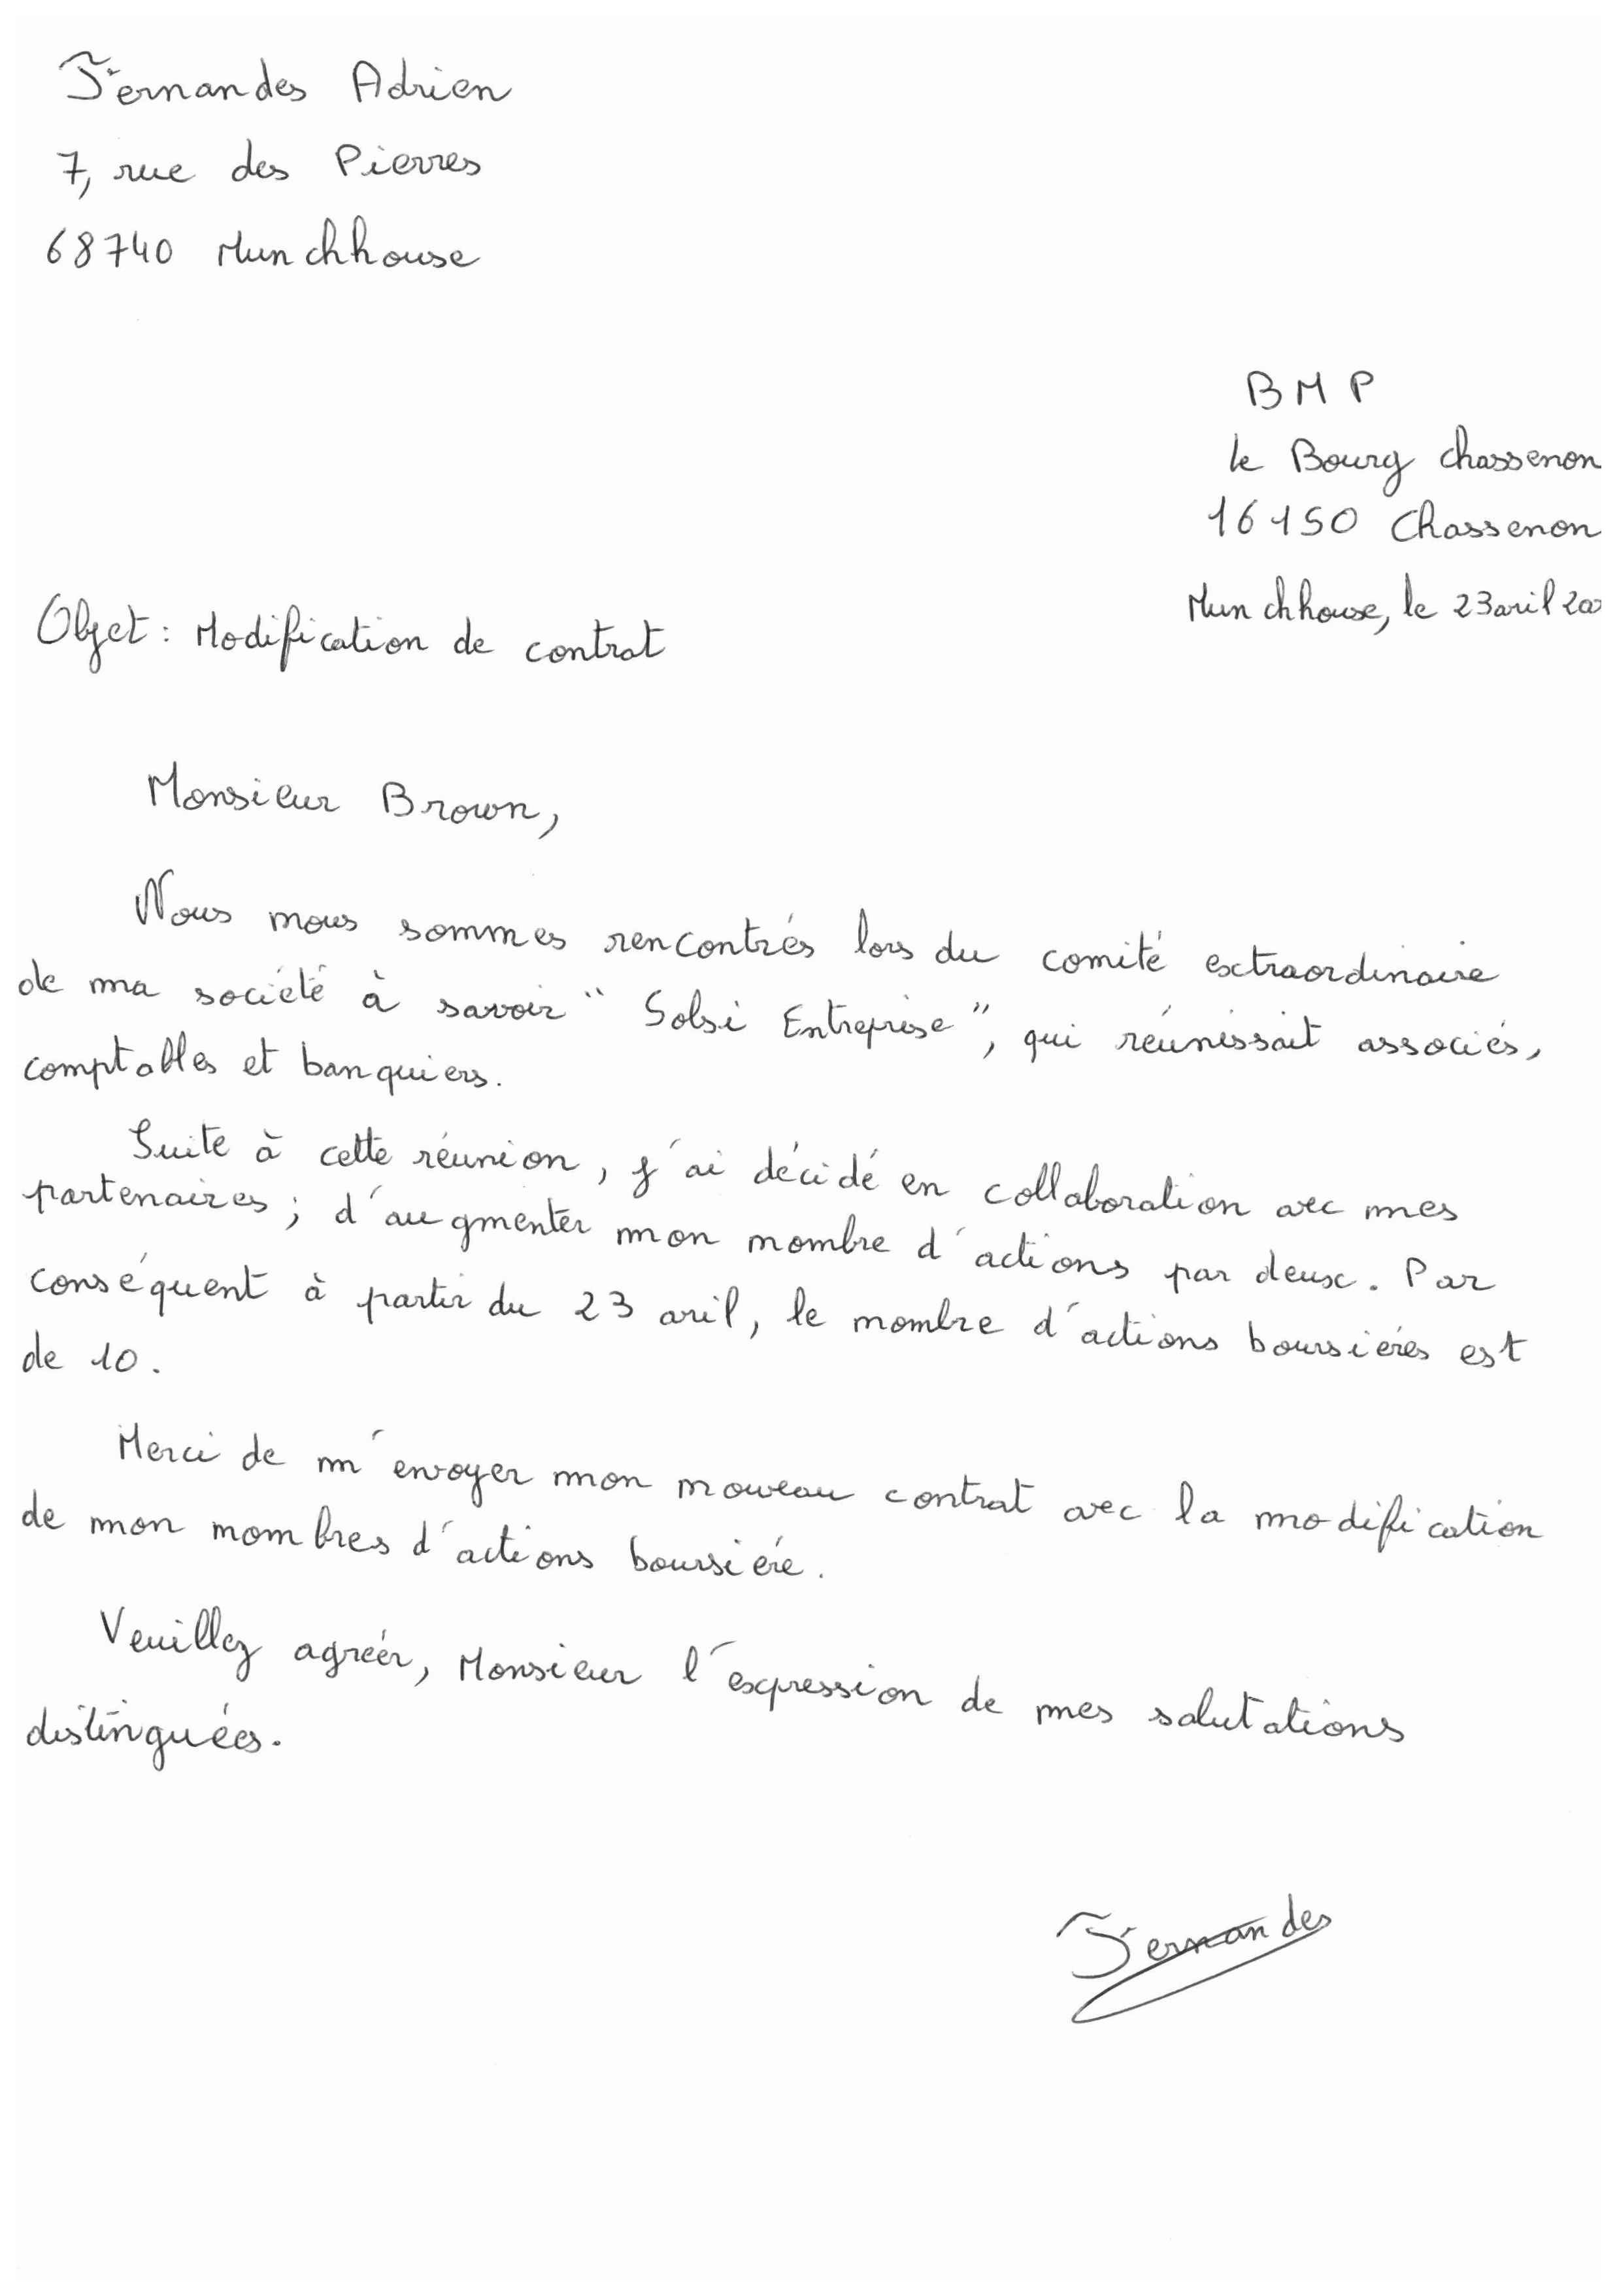 Fernandes Adrien
7, rue des Pierres
68740 Munchhouse
BMP
le Bourg chassenon
16150 Chassenon
Munchhouse, le 23 avril 200
Objet : Modification de contrat
Monsieur Brown,
Nous nous sommes rencontrés lors du comité extraordinaire
de ma société à savoir " Solsi Entreprise ", qui réunissait associés,
comptables et banquiers.
Suite à cette réunion, j'ai décidé en collaboration avec mes
partenaires ; d'augmenter mon nombre d'actions par deux. Par
conséquent à partir du 23 avril, le nombre d'actions boursiérés est
de 10.
Merci de m'envoyer mon nouveau contrat avec la modification
de mon nombres d'actions boursiére.
Veuillez agréér, Monsieur l'expression de mes salutations
distinguées.
Fernandes